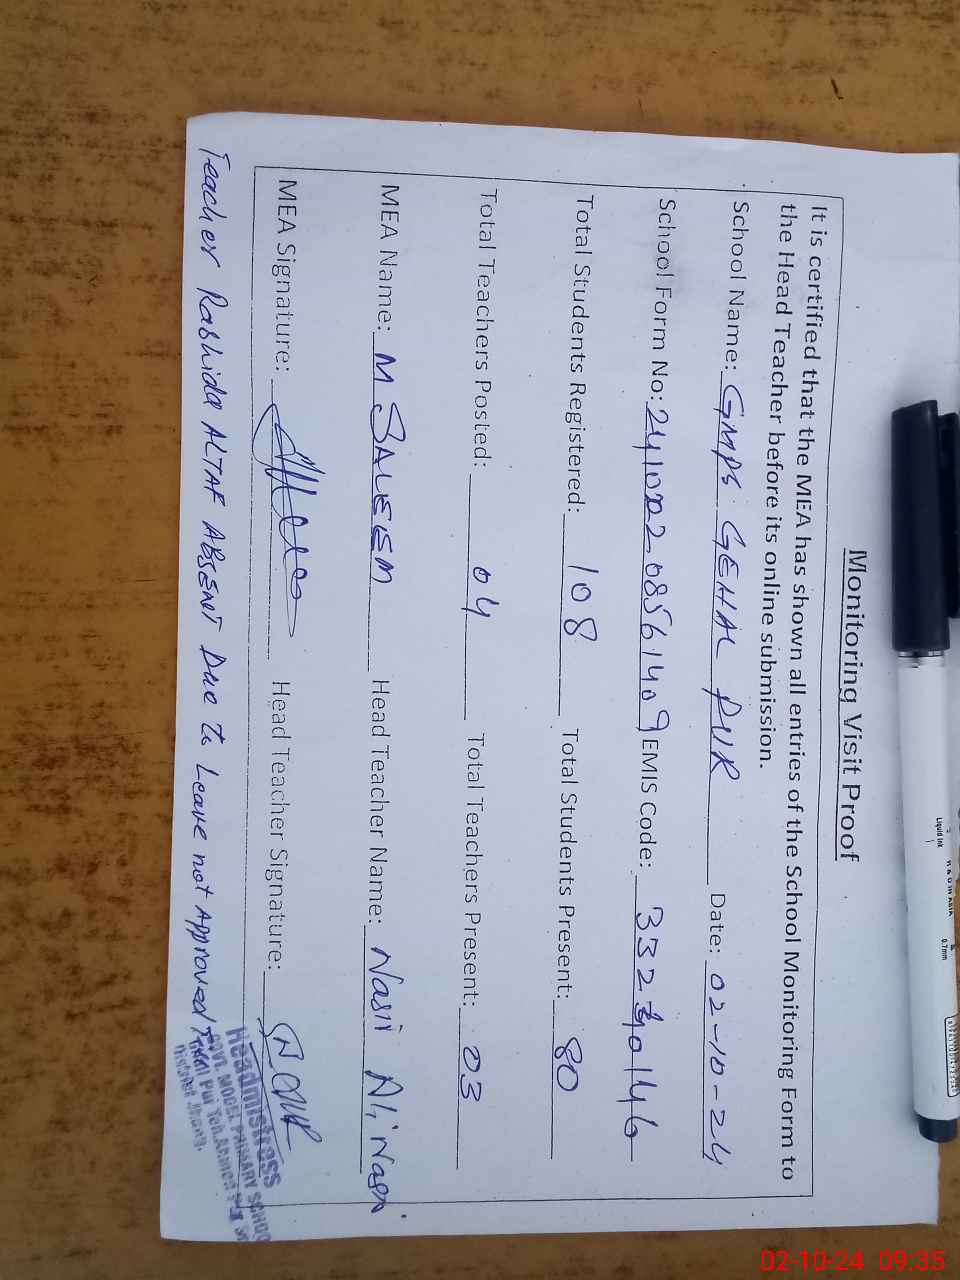 Monitoring Visit Proof
It is certified that the MEA has shown all entries of the School Monitoring Form to
the Head Teacher before its online submission.
School Name: GMPS GEHAL PUR Date: 02-10-24
School Form No: EMIS Code:
Total Students Registered: 108 Total Students Present: 80
Total Teachers Posted: 04 Total Teachers Present: 03
MEA Name: M SALEEM Head Teacher Name: Nasir
MEA Signature: Head Teacher Signature:
Teacher Rashida ALTAF ABSENT Due to Leave not Approved
Headmistress
GOVT. MODEL PRIMARY SCHOOL
District Jhang.
Liquid Ink
0.7mm
02-10-24 09:35